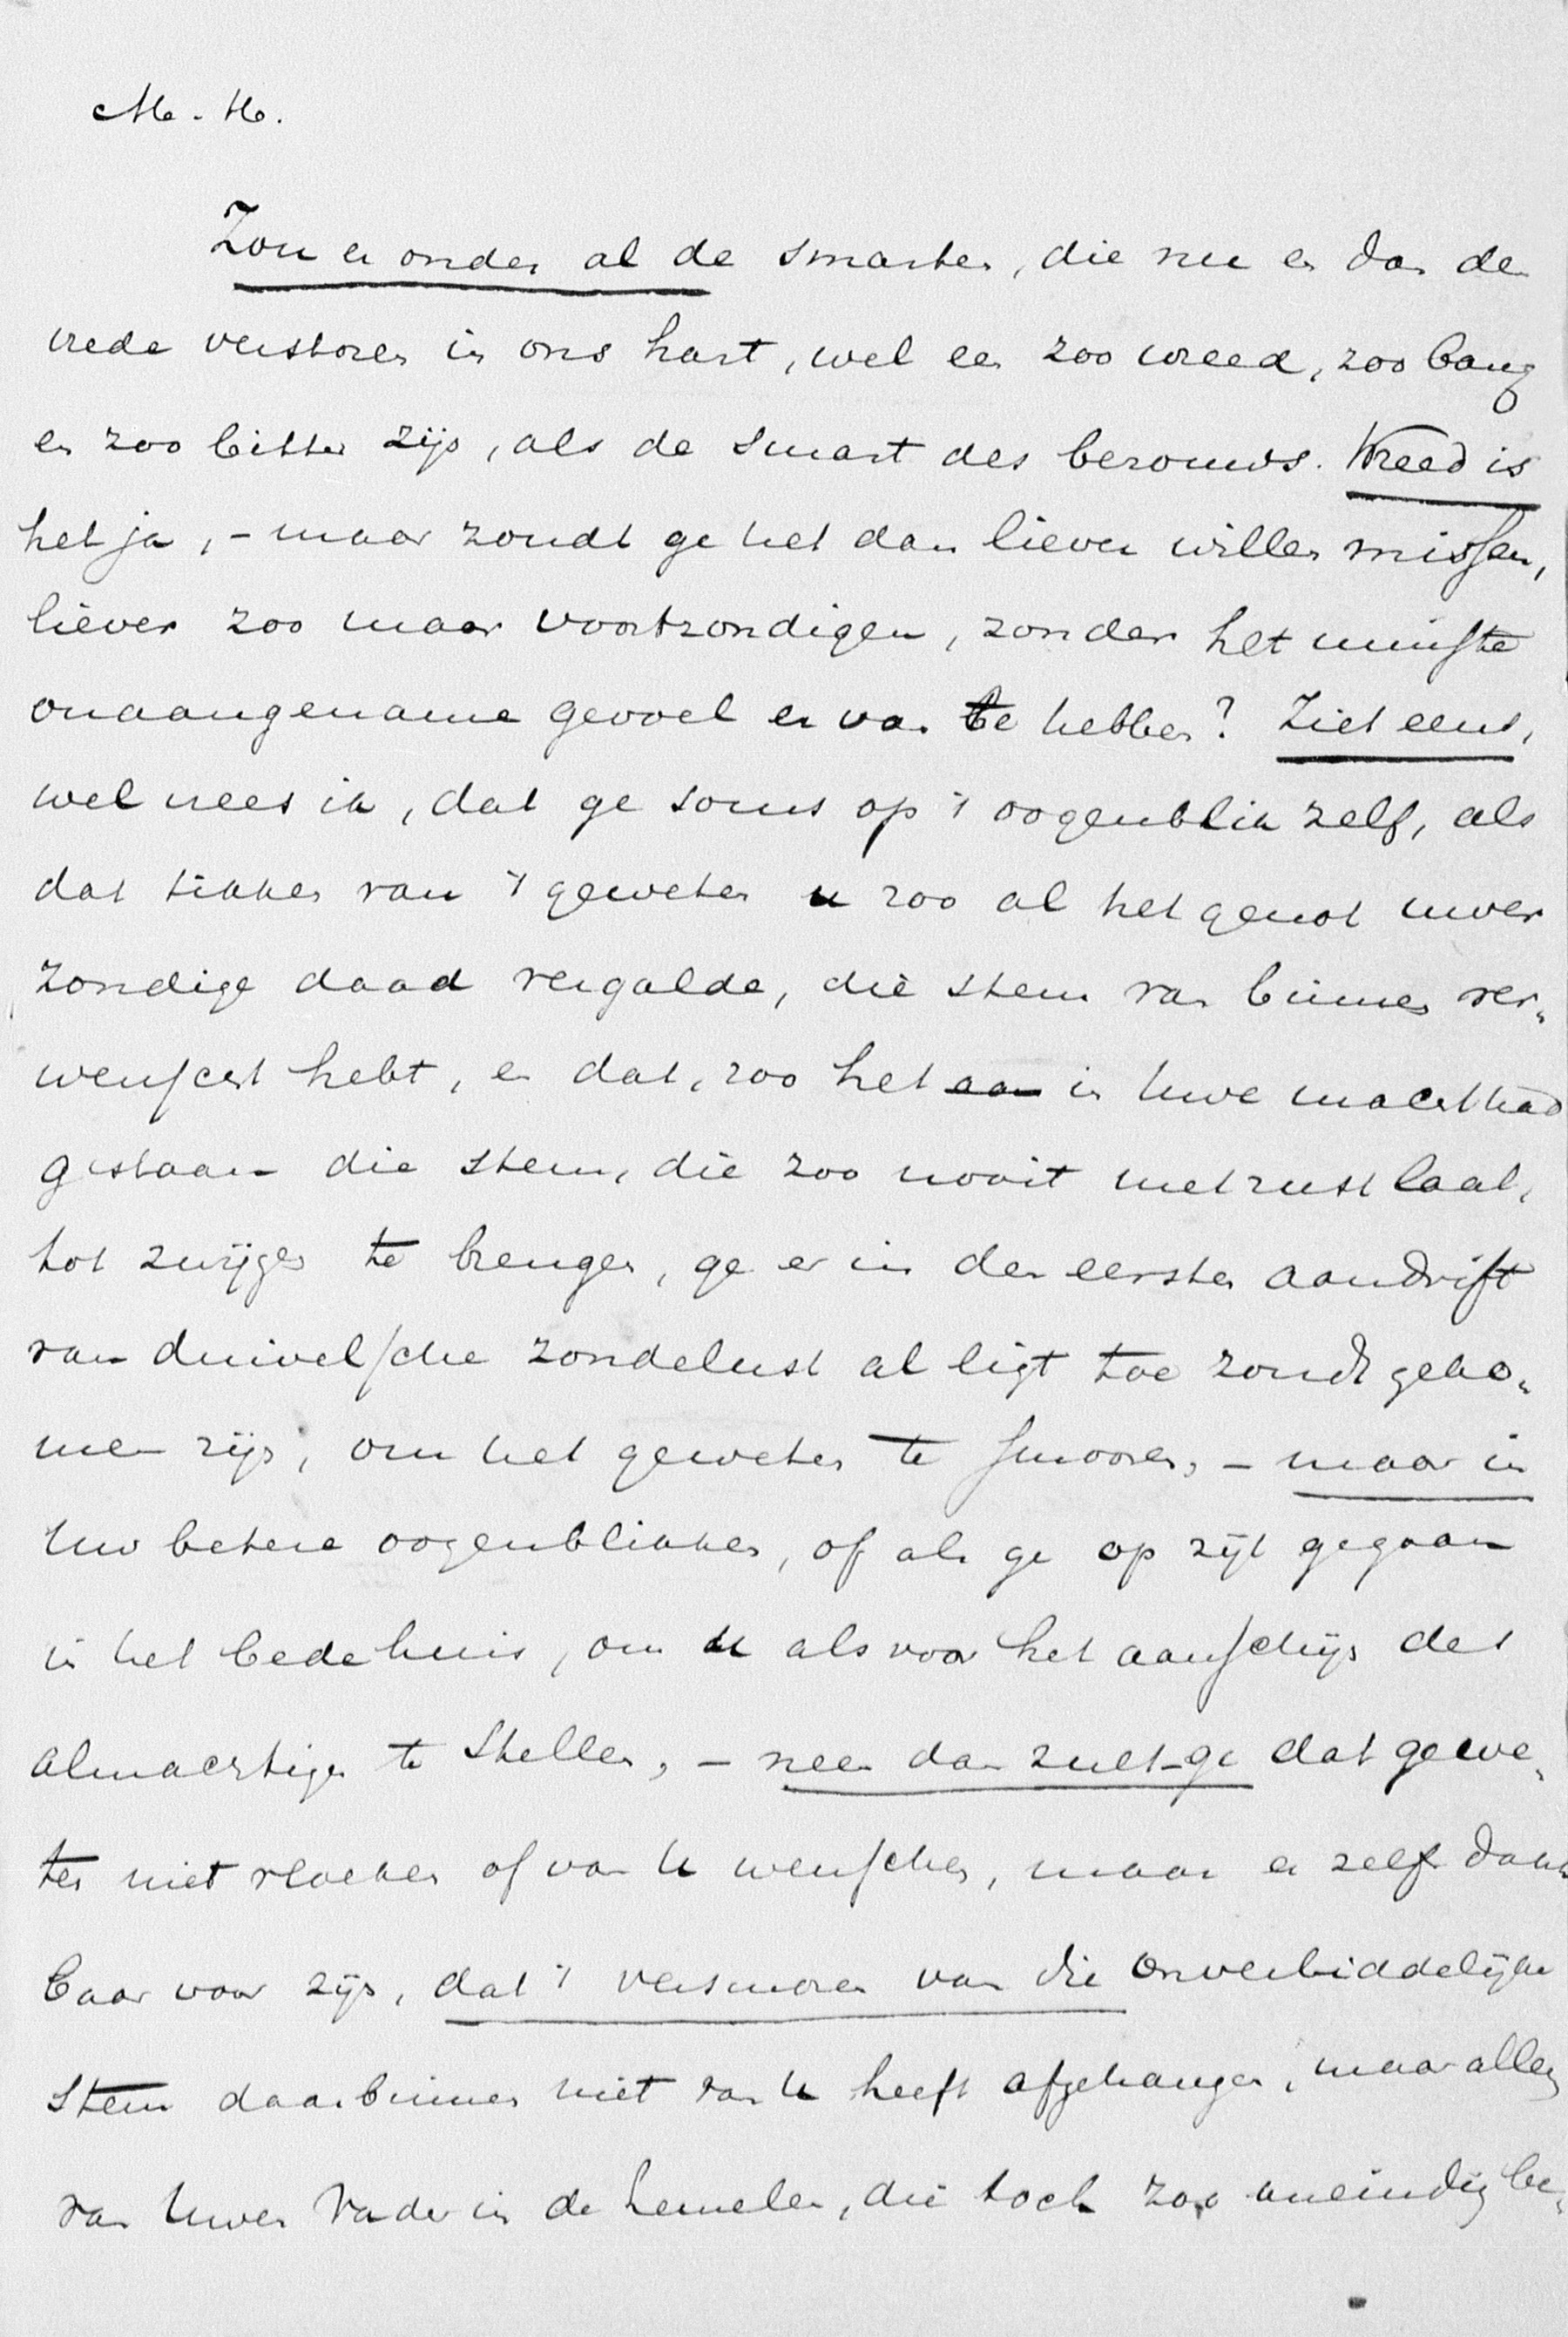 M. H.
Zou er onder al de smarten, die nu en dan de
vrede verstoren in ons hart, wel een zoo wreed, zoo bang
en zoo bitter zijn, als de smart des berouws. Wreed is
het ja, - maar zoudt ge het dan liever willen missen,
liever zoo maar voortzondigen, zonder het minste
onaangename gevoel er van te hebben? Ziet eens,
wel vrees ik, dat ge soms op 't oogenblik zelf, als
dat tikken van 't geweten u zoo al het genot uwer
zondige daad vergalde, die stem van binnen ver„
wenscht hebt, en dat, zoo het aan in Uwe macht had
gestaan die stem, die zoo nooit met rust laat,
tot zwijgen te brengen, ge er in den eersten aandrift
van duivelsche zondelust al ligt toe zoudt geko„
men zijn, om het geweten te smooren, - maar in
Uw betere oogenblikken, of als ge op zijt gegaan
in het bedehuis, om u als voor het aanschijn des
almachtigen te stellen, - neen dan zult-ge dat gewe„
ten niet vloeken of van U wenschen, maar er zelf dank
baar voor zijn, dat 't versmoren van die onverbiddelijke
stem daarbinnen niet van U heeft afgehangen, maar alleen
van Uwen Vader in de hemelen, die toch zoo oneindig be„